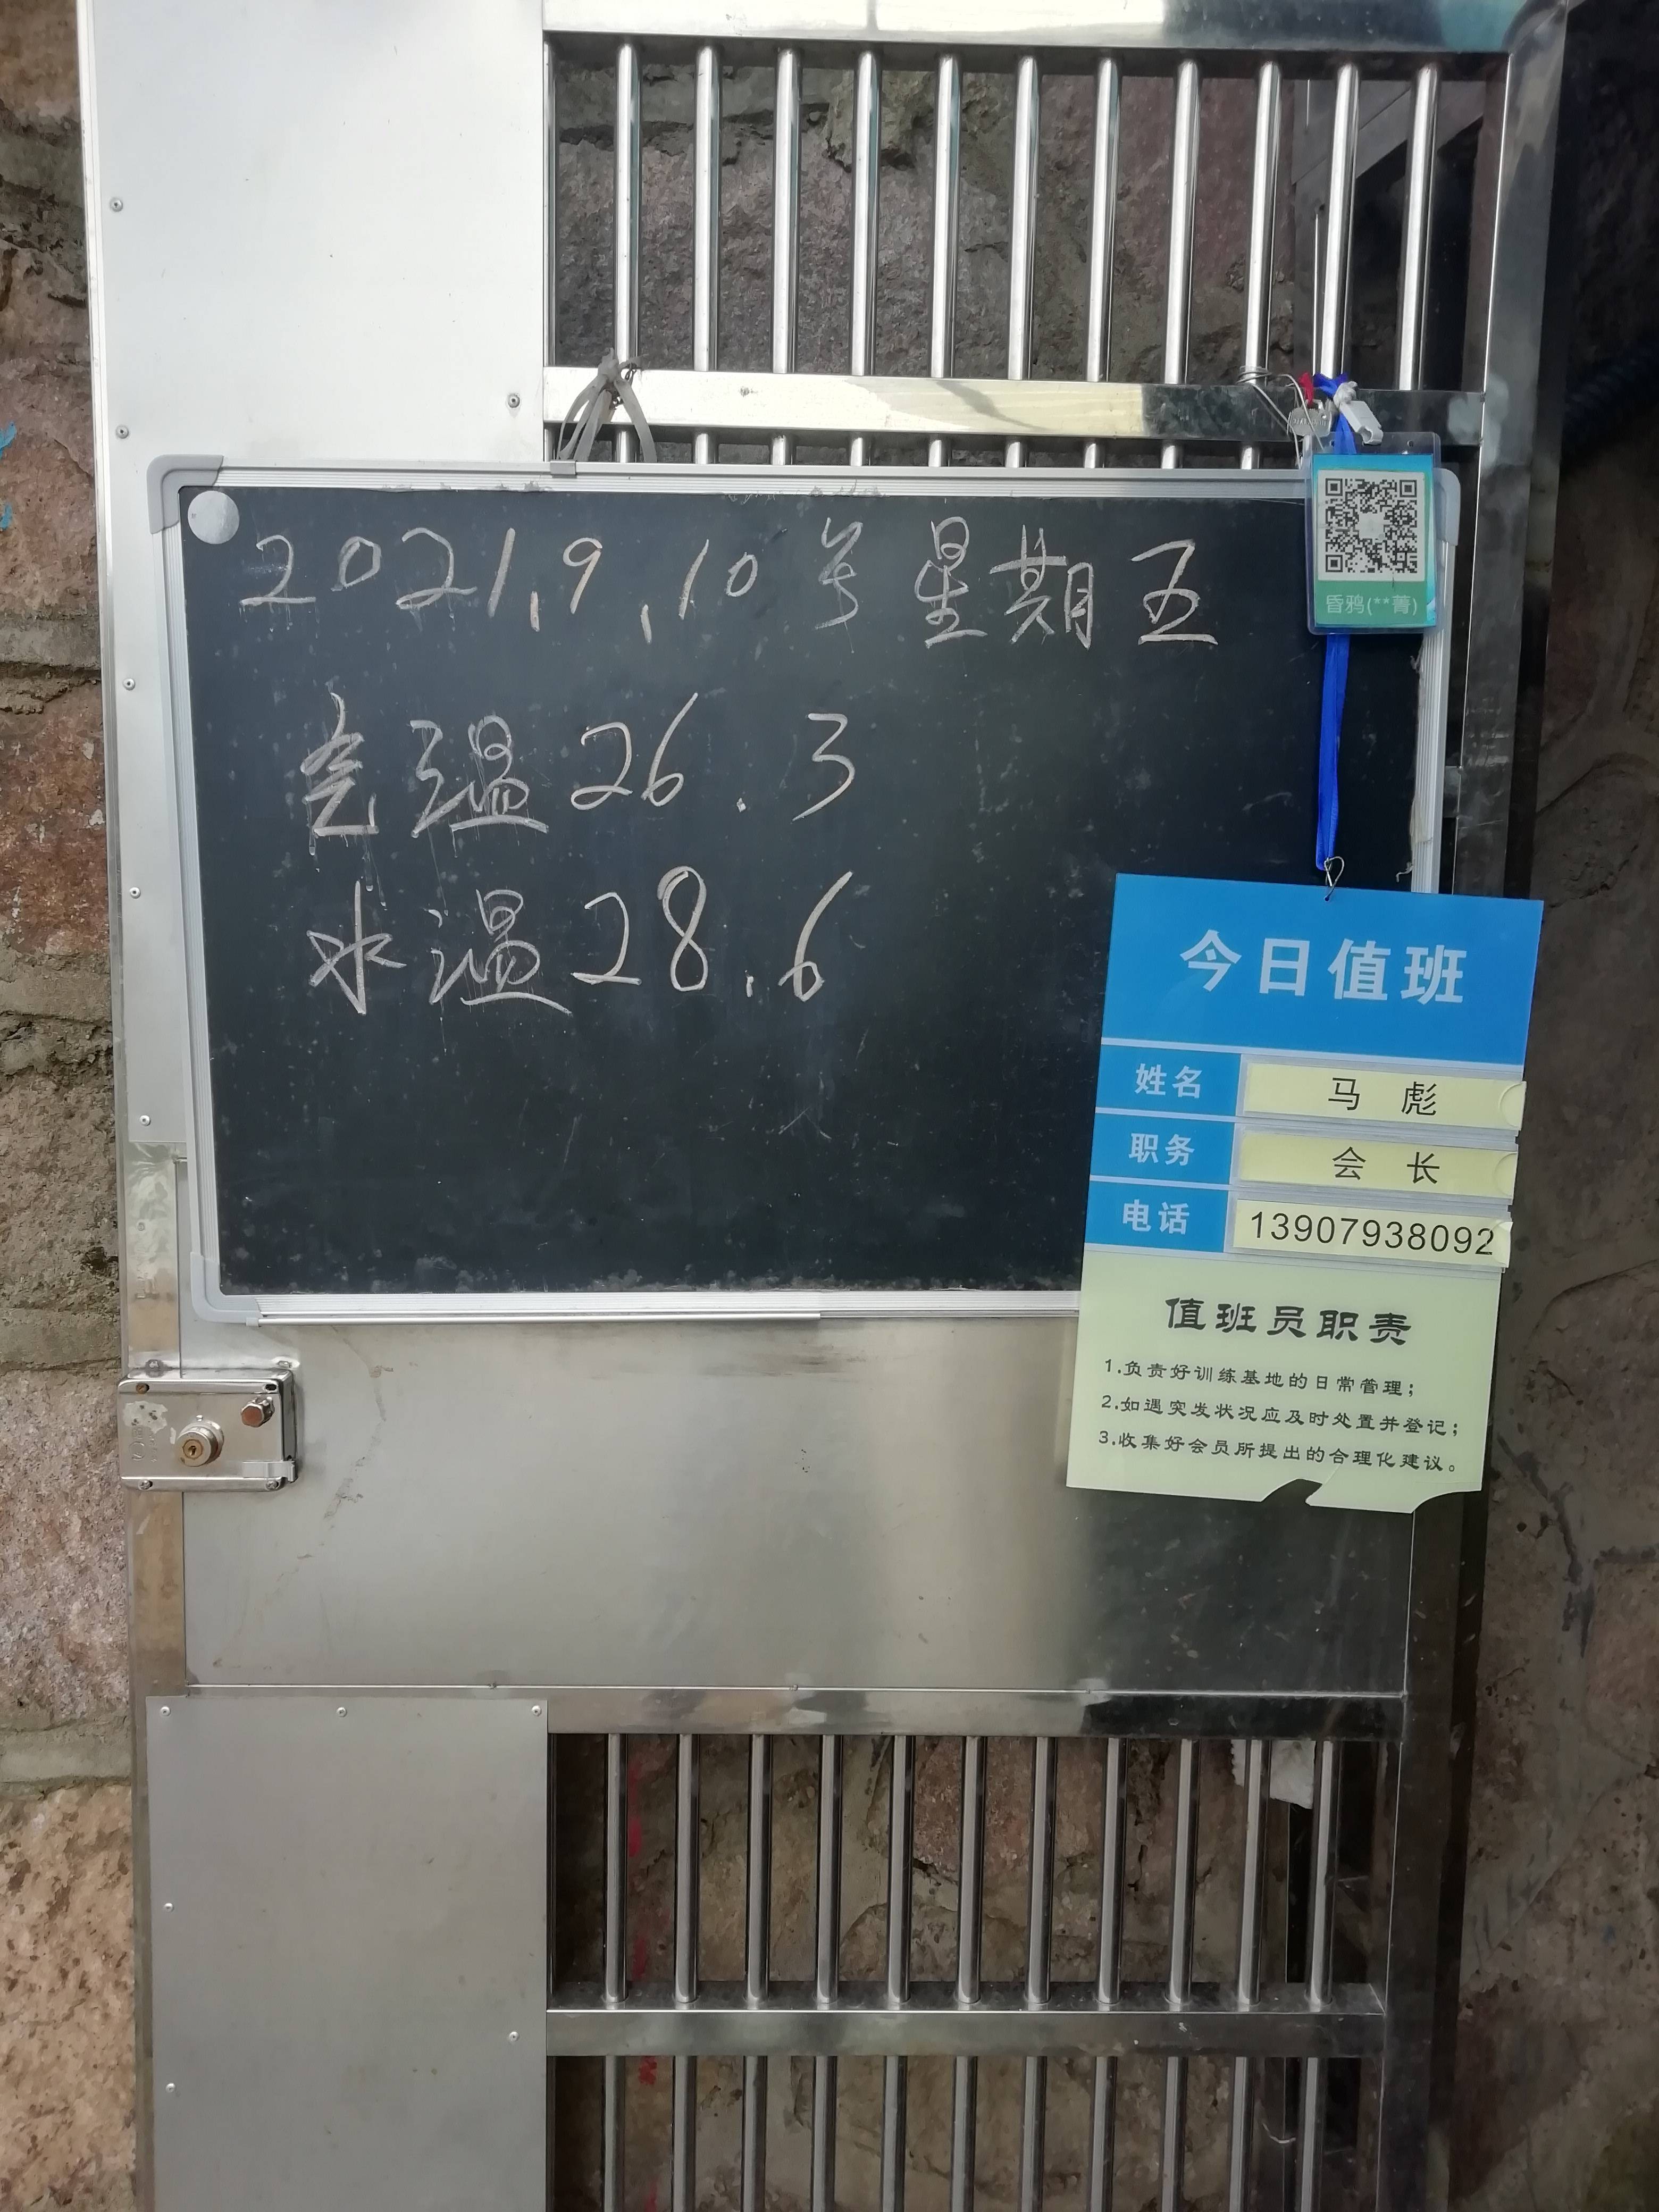 2021.9.10号星期五
气温26.3
水温28.6
昏鸦(**菁)
今日值班
姓名 马彪
职务 会长
电话 13907938092
值班员职责
1.负责好训练基地的日常管理；
2.如遇突发状况应及时处置并登记；
3.收集好会员所提出的合理化建议。